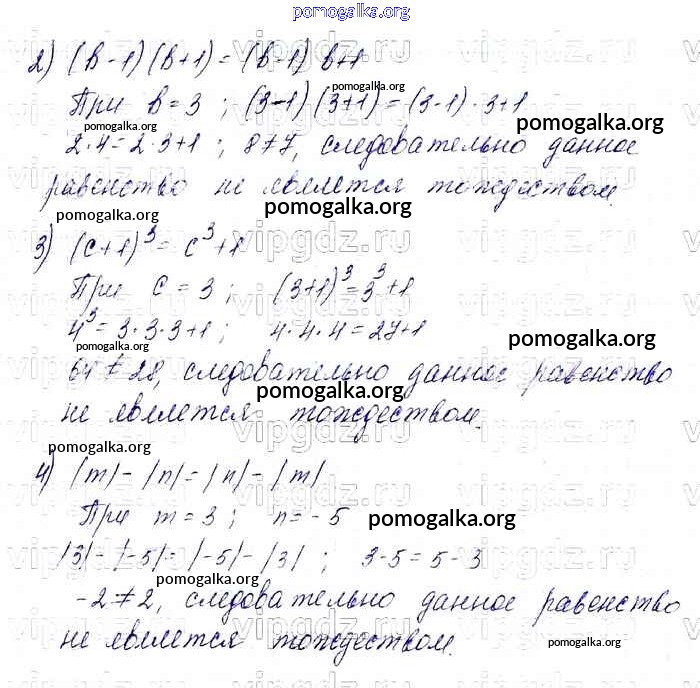 pomogalka.org
2) (в-1)(в+1)=(в-1) в+1
pomogalka.org
При в=3 ; (3-1)(3+1)=(3-1)·3+1
pomogalka.org
pomogalka.org
2·4=2·3+1 ; 8≠7, следовательно данное
равенство не является тождеством.
pomogalka.org pomogalka.org
3) (c+1)³=c³+1
При c=3 ; (3+1)³=3³+1
4³=3·3·3+1 ; 4·4·4=27+1
pomogalka.org
64≠28, следовательно данное равенство
pomogalka.org
не является тождеством.
pomogalka.org
4) |m|-|n|=|n|-|m|
При m=3 ; n=-5
pomogalka.org
|3|-|-5|=|-5|-|3| ; 3-5=5-3
pomogalka.org
-2≠2, следовательно данное равенство
не является тождеством.
pomogalka.org
vipgdz.ru